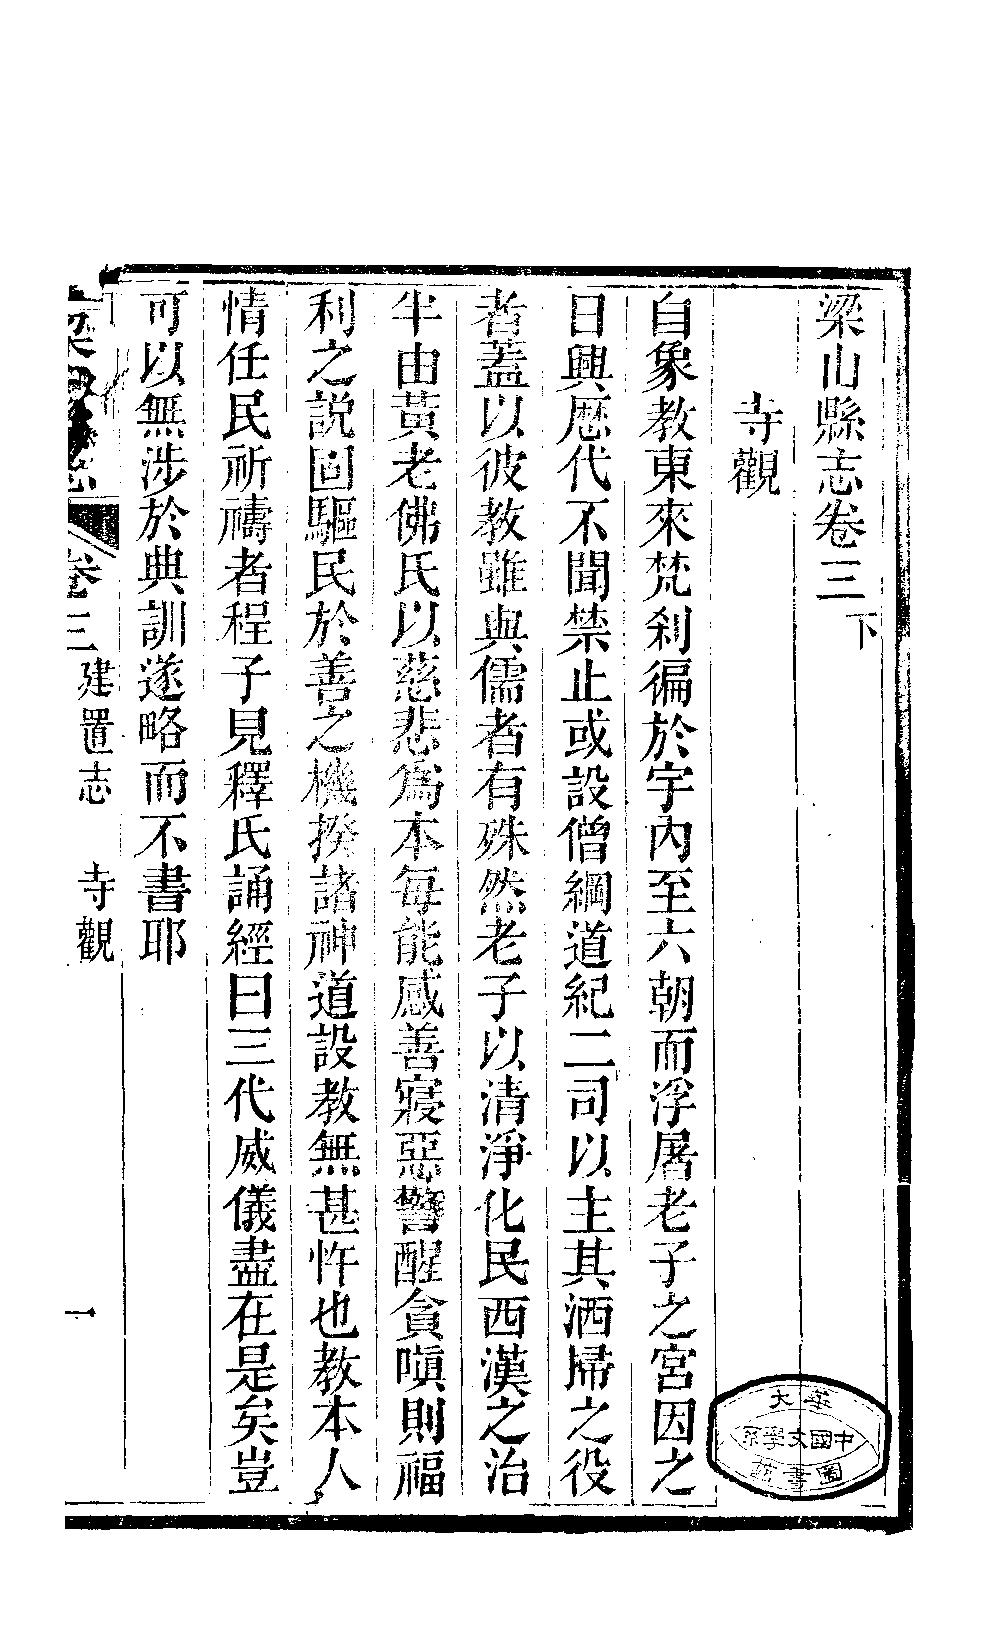 梁山縣志卷三下
寺觀
自象教東來梵刹徧於宇內至六朝而浮屠老子之宮因之
日興歷代不聞禁止或設僧綱道紀二司以主其洒掃之役
者蓋以彼教雖與儒者有殊然老子以清淨化民西漢之治
半由黃老佛氏以慈悲爲本每能感善寢惡警醒貪嗔則福
利之說固驅民於善之機揆諸神道設教無甚忤也教本人
情任民祈禱者程子見釋氏誦經曰三代威儀盡在是矣豈
可以無涉於典訓遂略而不書耶
卷三 建置志 寺觀 一
中國文學系
圖書